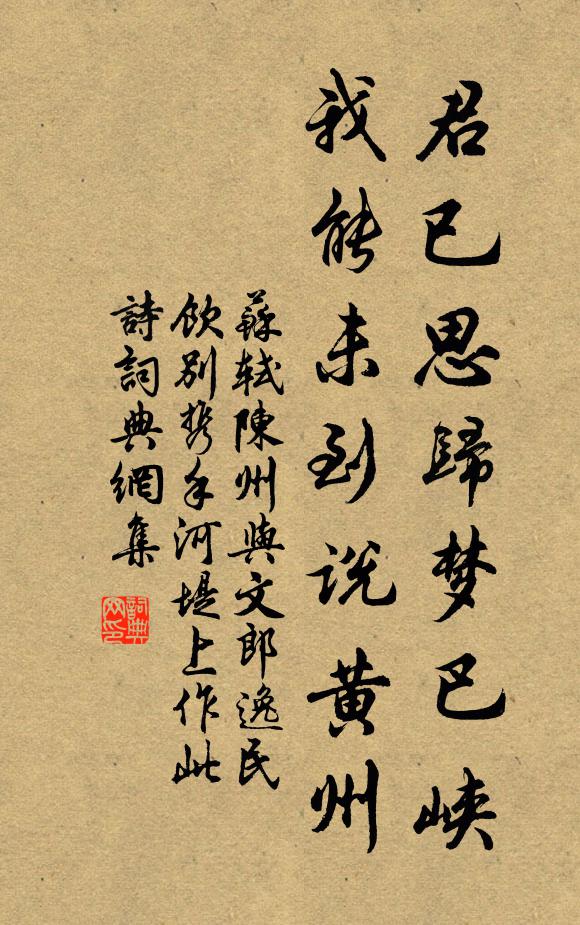 君已思歸梦巴峽
我能未到说黄州
蘇軾陳州與文郎逸民
飲別携手河堤上作此
詩詞典網集
詞典
网印